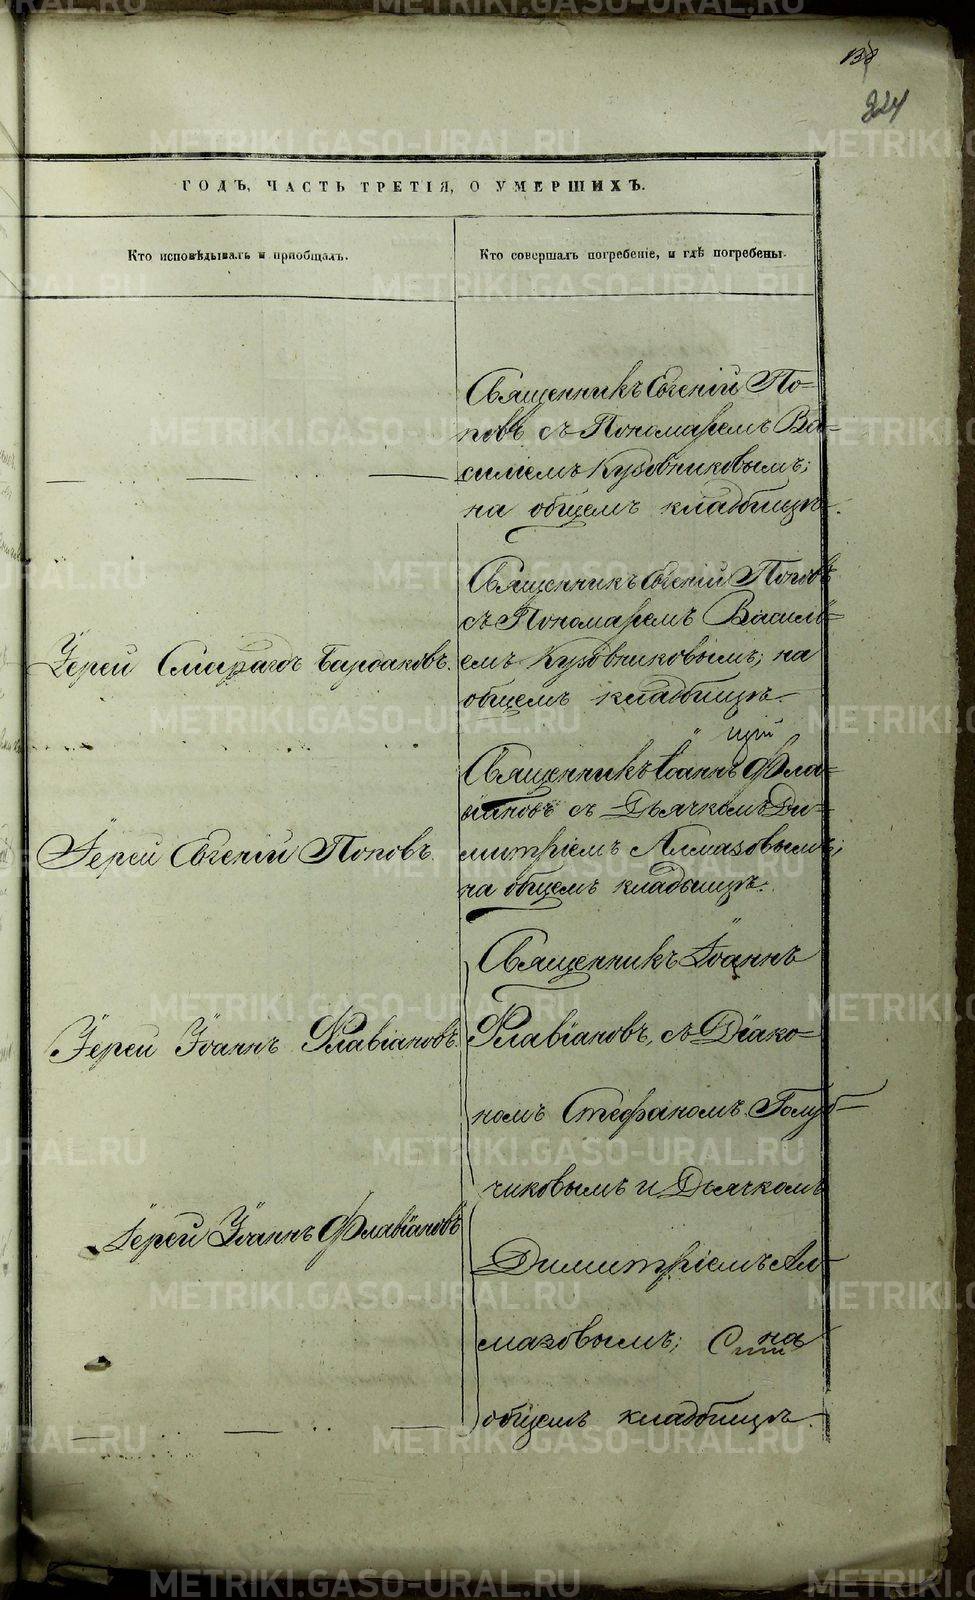 138
224
ГОДЪ, ЧАСТЬ ТРЕТІЯ, О УМЕРШИХЪ.
Кто исповѣдывалъ и пріобщалъ.
Кто совершалъ погребеніе, и гдѣ погребены.
Священникъ Евгеній По-
повъ съ Пономаремъ Ва-
силіемъ Кузовниковымъ;
на общемъ кладбищѣ.
Іерей Смарагдъ Бирюковъ.
Священникъ Евгеній Поповъ
съ Пономаремъ Василь-
емъ Кузовниковымъ; на
общемъ кладбищѣ.
Іерей Евгеній Поповъ.
Священникъ Іоаннъ Фла-
віановъ съ Дьячкомъ Ди-
митріемъ Алмазовымъ;
на общемъ кладбищѣ.
Іерей Іоаннъ Флавіановъ.
Іерей Іоаннъ Флавіановъ
Священникъ Іоаннъ
Флавіановъ, съ Діако-
номъ Стефаномъ Голуб-
чиковымъ и Дьячкомъ
Димитріемъ Ал-
мазовымъ; на
общемъ кладбищѣ.
METRIKI.GASO-URAL.RU